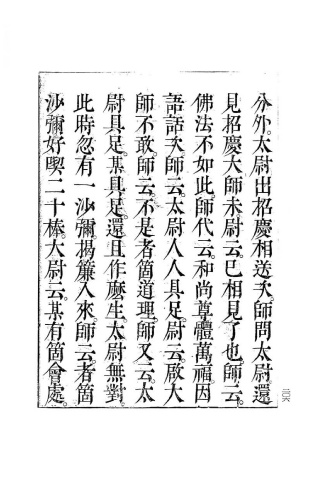 分外太尉出招慶相送次師問太尉還
見招慶大師未尉云已相見了也師云
佛法不如此師代云和尚尊體萬福因
語話次師云太尉人人具足尉云啟大
師不敢師云不是者箇道理師又云太
尉具足某具足還且作麼生太尉無對
此時忽有一沙彌揭簾入來師云者箇
沙彌好喫二十棒大尉云某有箇會處